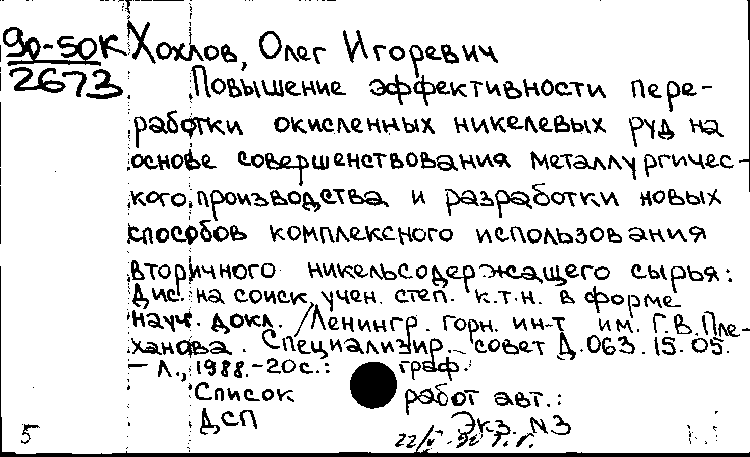 90-50К Хохлов, Олег Игоревич
2673 Повышение эффективности пере-
работки окисленных никелевых руд на
основе совершенствования металлургичес-
кого производства и разработки новых
способов комплексного использования
вторичного никельсодержащего сырья:
Дис. на соиск. учен. степ. к.т.н. в форме
науч. докл. / Ленингр. горн. ин-т им. Г.В. Пле-
ханова. Специализир. совет Д.063.15.05.
- Л., 1988. - 20с.: граф.
Список работ авт.:
ДСП Экз. N3
5